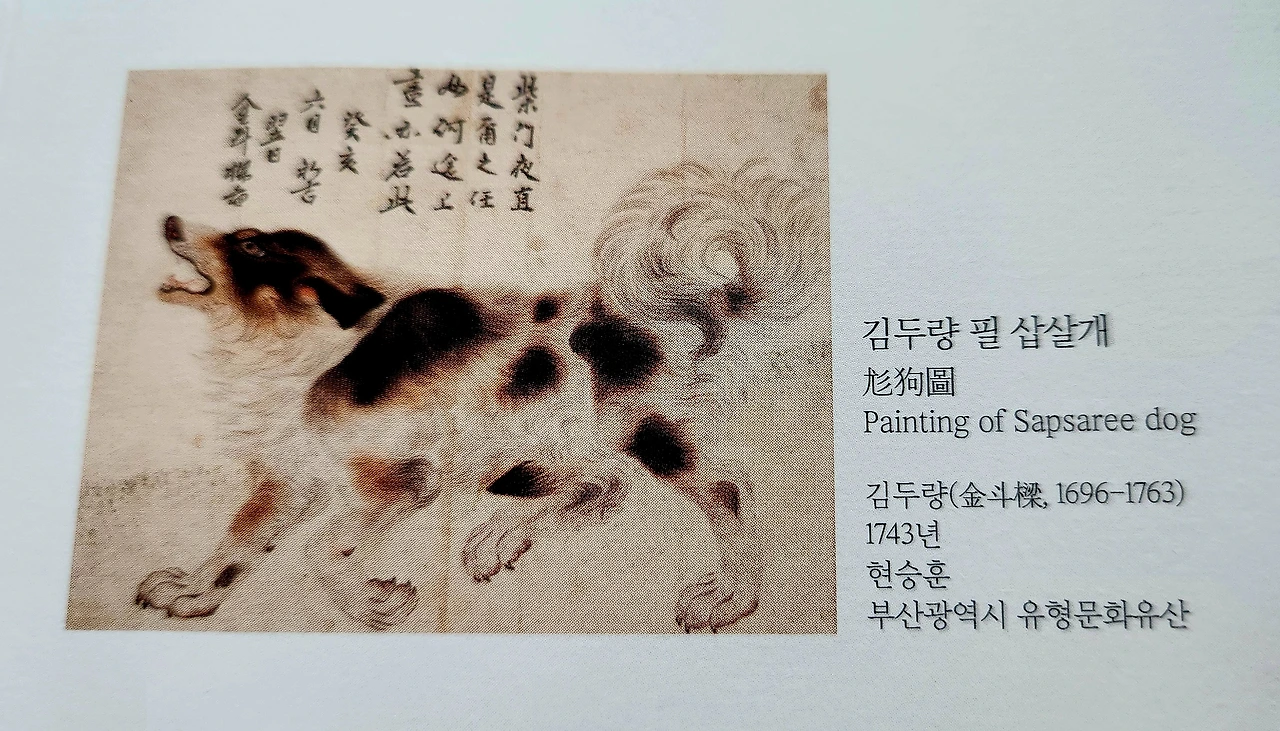 柴門夜直
是爾之任
如何途上
晝亦若此
癸亥
六月 初吉
翌日
金斗樑
김두량 필 삽살개
尨狗圖
Painting of Sapsaree dog
김두량(金斗樑, 1696-1763)
1743년
현승훈
부산광역시 유형문화유산